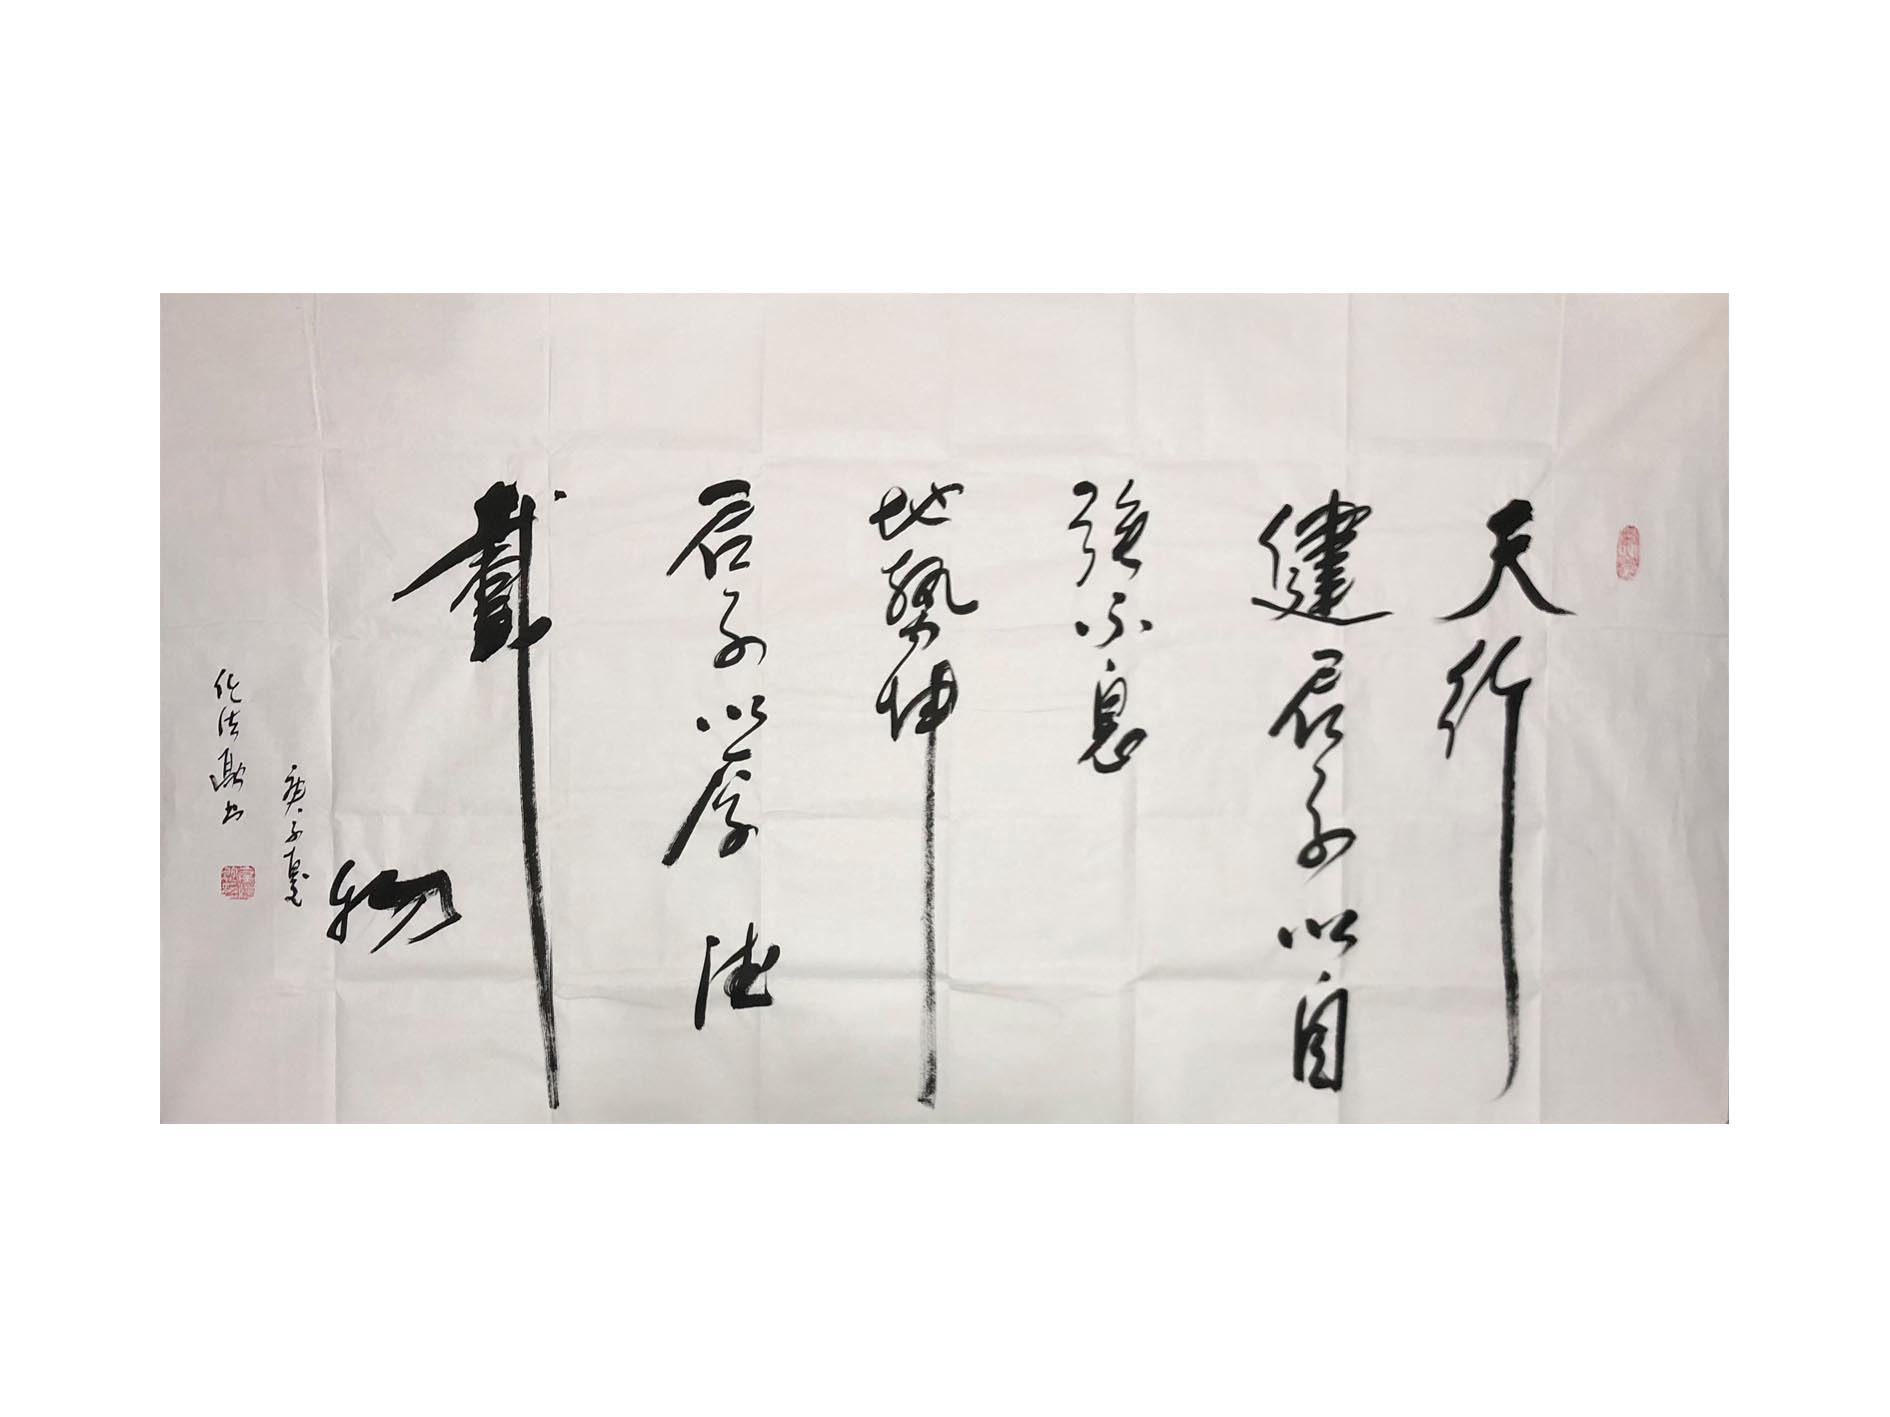 天行
健君子以自
强不息
地势坤
君子以厚德
载物
庚子夏